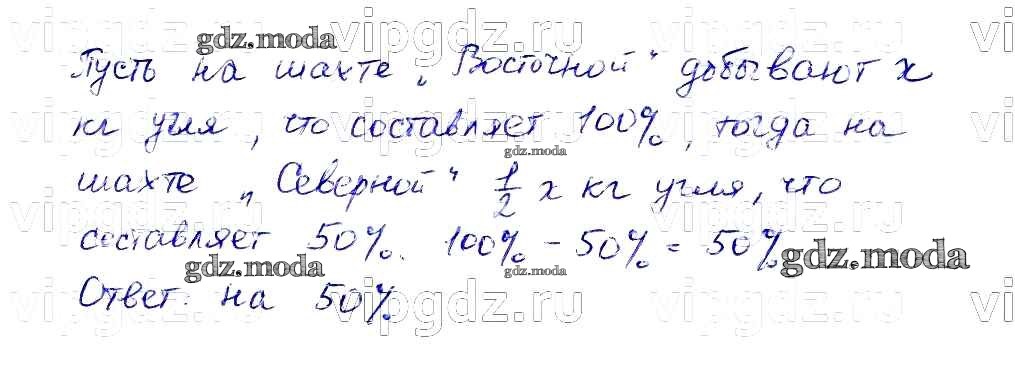 Пусть на шахте „Восточной“ добывают x
кг угля, что составляет 100%, тогда на
шахте „Северной“ 1/2 x кг угля, что
составляет 50%. 100% - 50% = 50%
Ответ: на 50%
vipgdz.ru vipgdz.ru vipgdz.ru vi
gdz.moda
vipgdz.ru vipgdz.ru vipgdz.ru vi
gdz.moda
vipgdz.ru vipgdz.ru vipgdz.ru vi
gdz.moda gdz.moda gdz.moda
vipgdz.ru vipgdz.ru vipgdz.ru vi